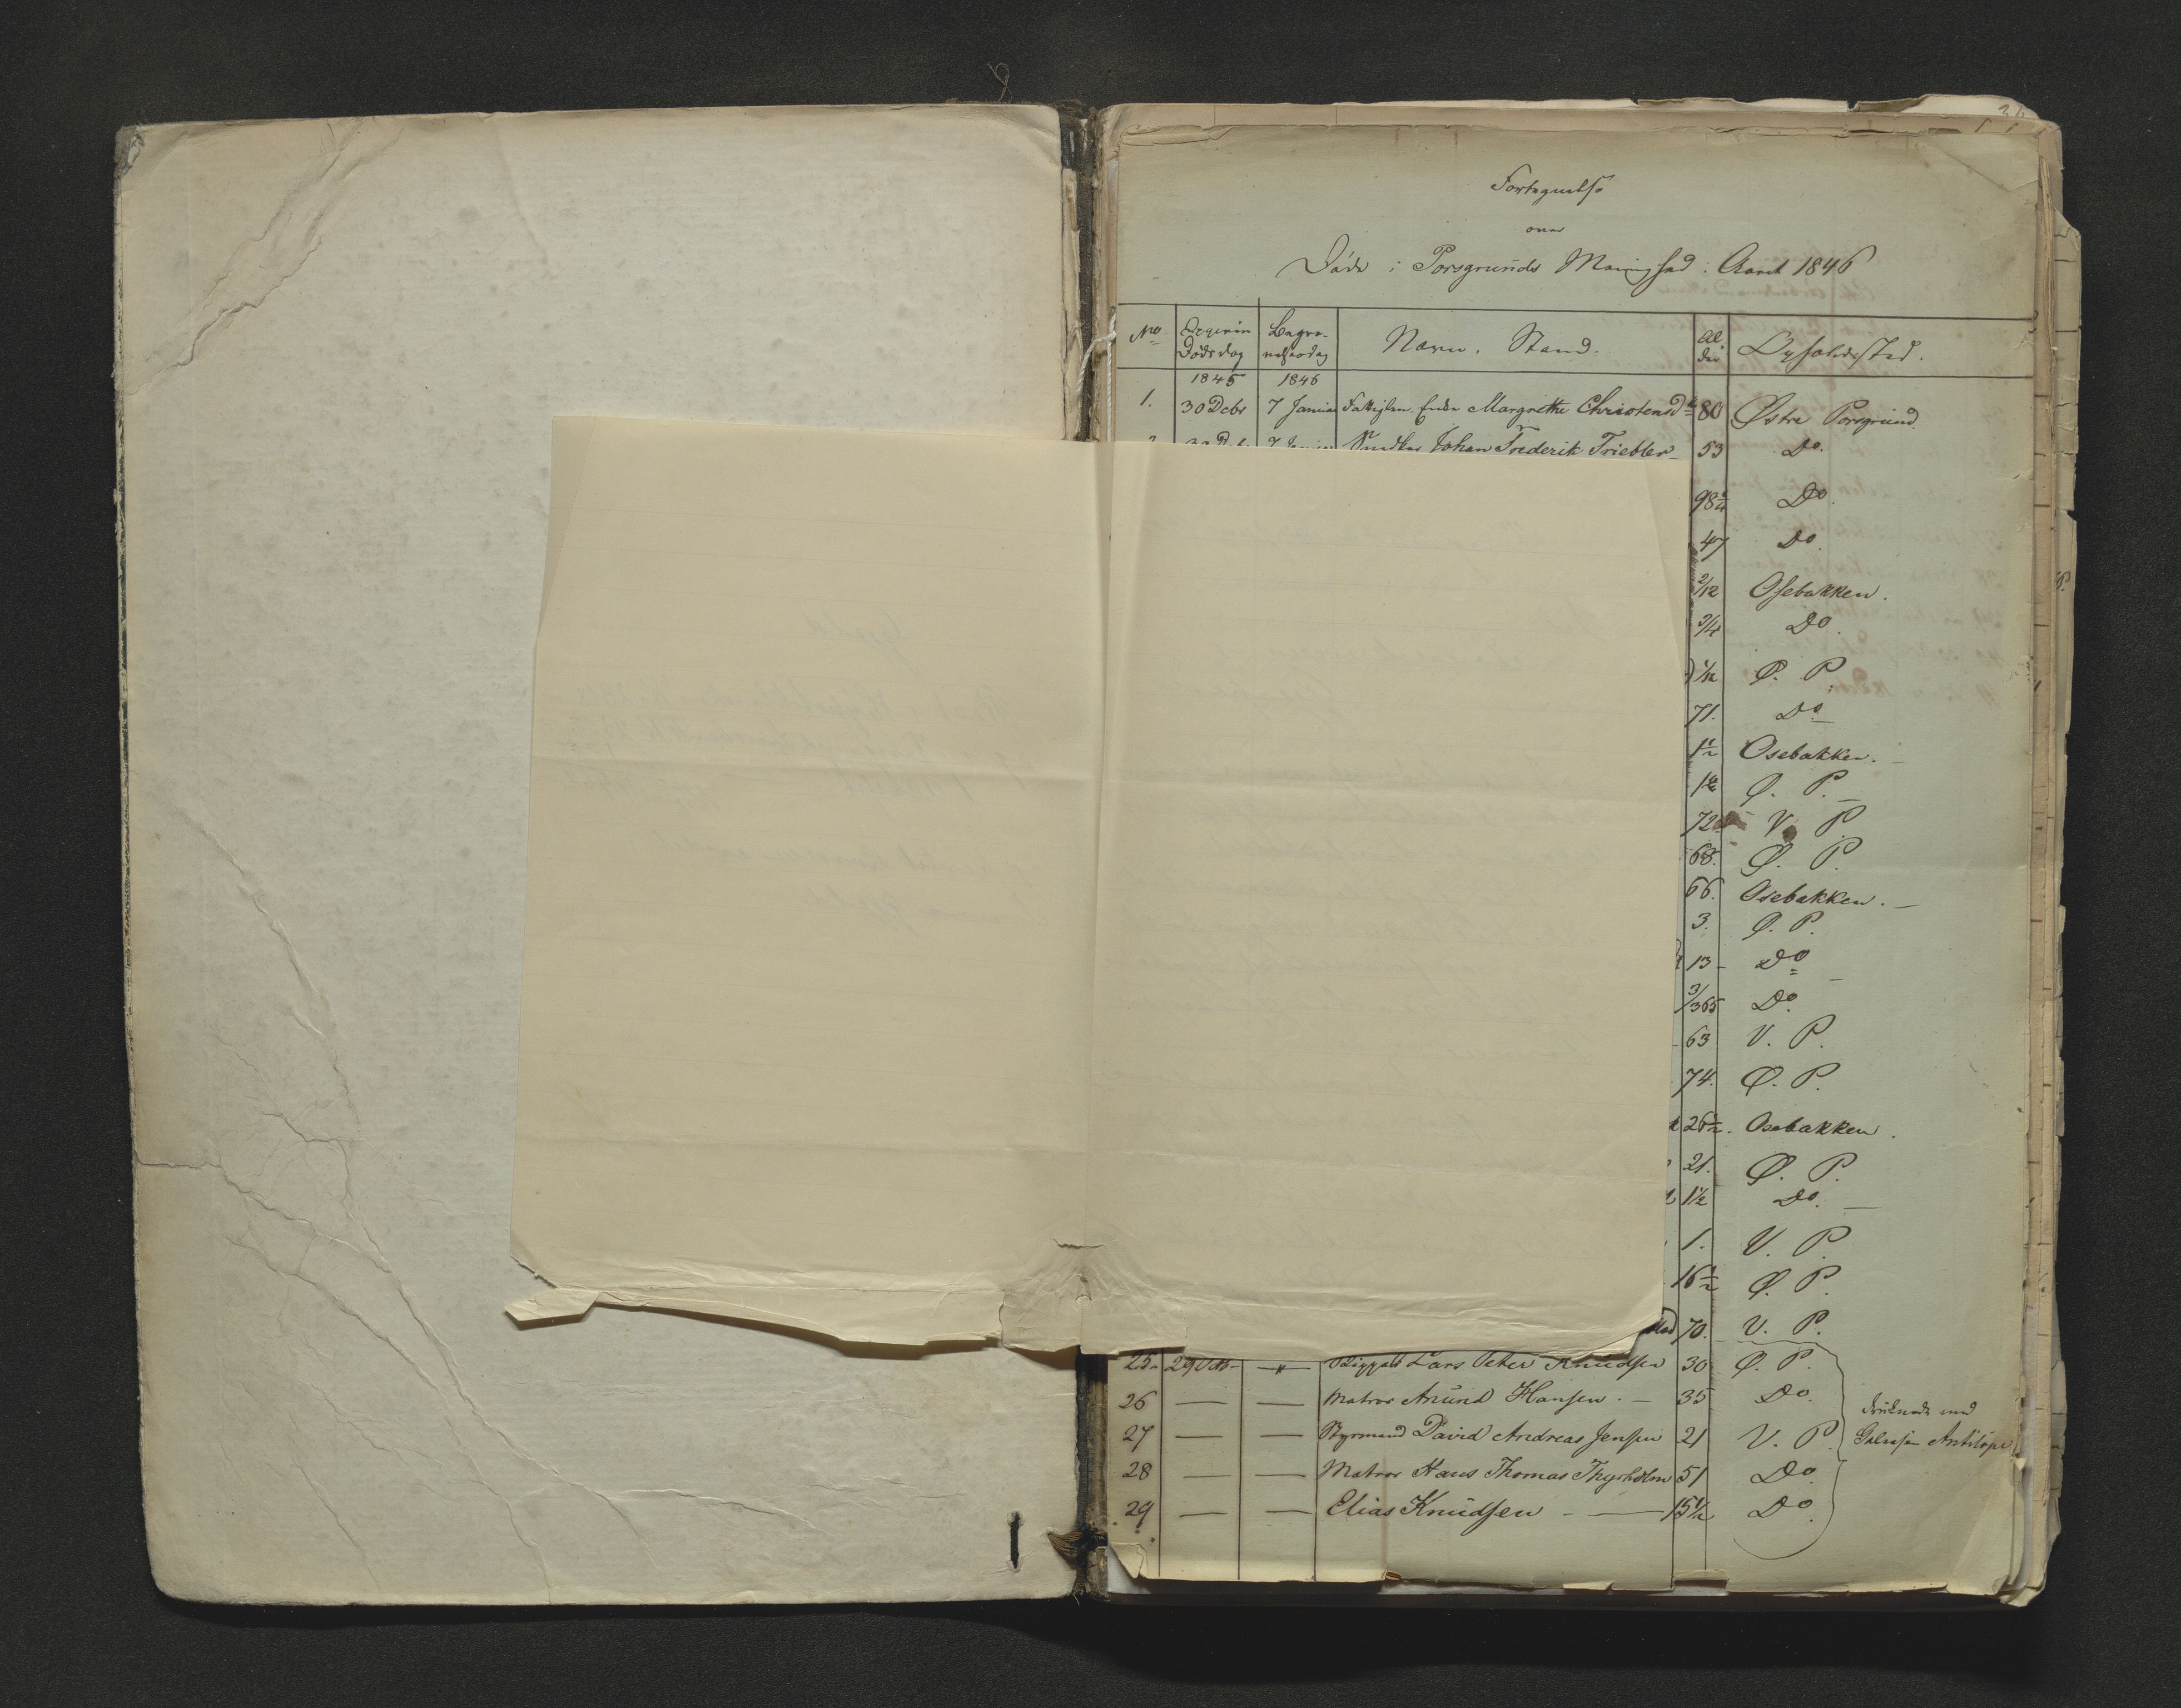 Fortegnelse
over
Døde i Porsgrunds Menighed i Aaret 1846
No Dødsdag Begravelsesdag Navn. Stand. Alder Opholdssted.
1845 1846
1. 30 Debr 7 Januar Margrethe Christensd 80 Østre Porsgrund.
Johan Frederik Triebler 53 Do.
98 Do.
47 Do.
2/12 Osebakken.
3/4 Do.
Ø. P.
71. Do.
1 1/2 Osebakken.
Ø. P.
72 V. P.
68. Ø. P.
66. Osebakken.
3. Ø. P.
13 Do
3/365 Do.
63 V. P.
74. Ø. P.
26 1/2. Osebakken.
21. Ø. P.
1 1/2 Do.
1. V. P.
16 1/2 Ø. P.
70. V. P.
25. 29 Lars Peter Knudsen 30 Ø. P.
26 — — Matros Anund Hansen. — 35 Do.
druknede med
27 — — Styrmand David Andreas Jensen 21 V. P.
Antilope
28 — — Matros Hans Thomas Thyrholm 51 Do.
29 — — Elias Knudsen — 15 1/2 Do.